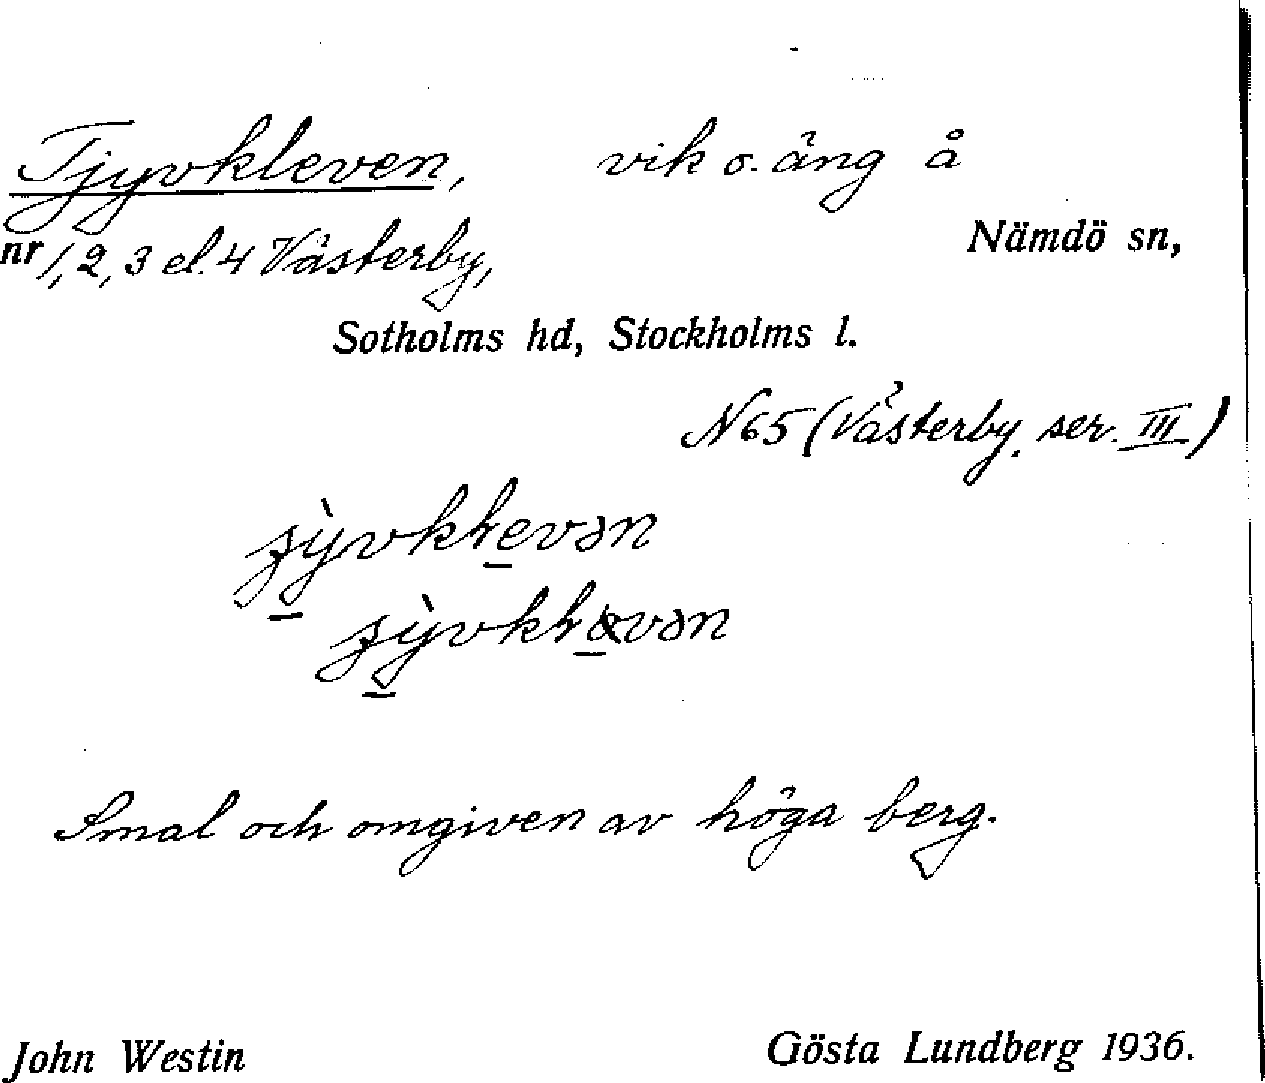 Tjyvkleven, vik o. äng å
Nämdö sn,
nr 1, 2, 3 el. 4 Västerby,
Sotholms hd, Stockholms l.
N 65 (Västerby. ser. III)
Smal och omgiven av höga berg.
John Westin Gösta Lundberg 1936.